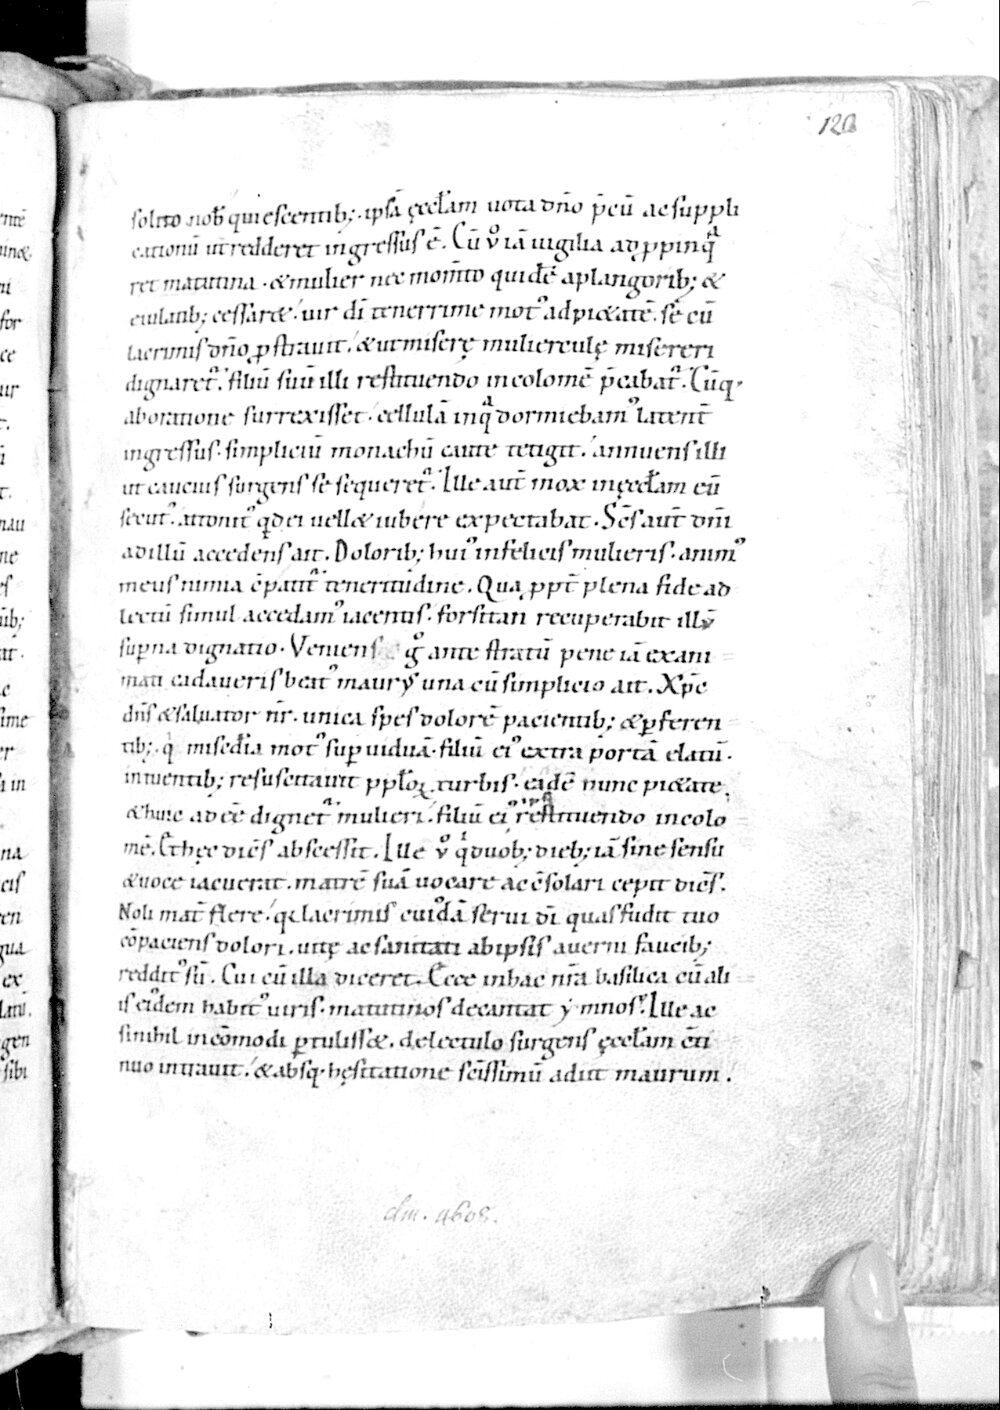 120
solito nob̄ quiescentib; · ipsā ęccłam uota dn̄o p̄cū ac suppli
cationū ut redderet ingressus ē. Cū ů iā uigilia adppinq̣ᷓ
ret matutina · & mulier nec mom̄to quidē aplangorib; &
eiulatib; cessar&; uir dī tenerrime motꝰ adpi&atē · se cū
lacrimis dn̄o ꝓstrauit; & ut miserę mulierculę misereri
dignaretᷓ · filiū suū illi restituendo incolomē p̄cabatᷓ. Cūq·
aboratione surrexisset · cellulā inqᷓ dormiebamꝰ latent̄
ingressus · simpliciū monachū caute tetigit; annuens illi
ut cauciꝰ surgens se sequeretᷓ. Ille aut̄ mox inęccłam eū
secutꝰ · attonitꝰ qd ei uell& iubere expectabat. Sc̄s aut̄ dn̄i
adillū accedens ait. Dolorib; huiꝰ infelicis mulieris · animꝰ
meus nimia c̄patitᷓ teneritudine. Qua ppt̄ plena fide ad
lectū simul accedamꝰ iacentis · forsitan recuperabit illū
sup̱na dignatio · Veniens g̊ ante stratū pene iā exani
mati cadaueris beat̄ꝰ maurꝰ una cū simplicio ait. Xp̄e
dn̄s & saluator nr̄ · unica spes dolorē pacientib; · & ꝑferen
tib; · qͥ misc̄dia motꝰ suꝑ uiduā · filiū eiꝰ extra portā elatū ·
intuentib; resuscitauit ppłoꝝ turbis · eādē nunc pi&ate
& huic adēē dignetᷓ mulieri · filiū eiꝰ ipsi restituendo incolo
mē. Et hęc dicēs abscessit. Ille ů qͥ duob; dieb; iā sine sensu
& uoce iacuerat · matrē suā uocare ac c̄solari cepit dicēs.
Noli mat̄ flere; q lacrimis euidā serui dī quas fudit tuo
cōpaciens dolori · uitę ac sanitati abipsis auerni faucib;
redditꝰ sū. Cui cū illa diceret. Ecce inhac nr̄a basilica cū ali
is eiꝰdem habitꝰ uiris · matutinos decantat ymnos; Ille ac
sinihil incōmodi ꝑtuliss& · delectulo surgens ęccłam c̄ti
nuo intrauit; & absq· hęsitatione scīssimū adiit maurum.
clm. 4608.